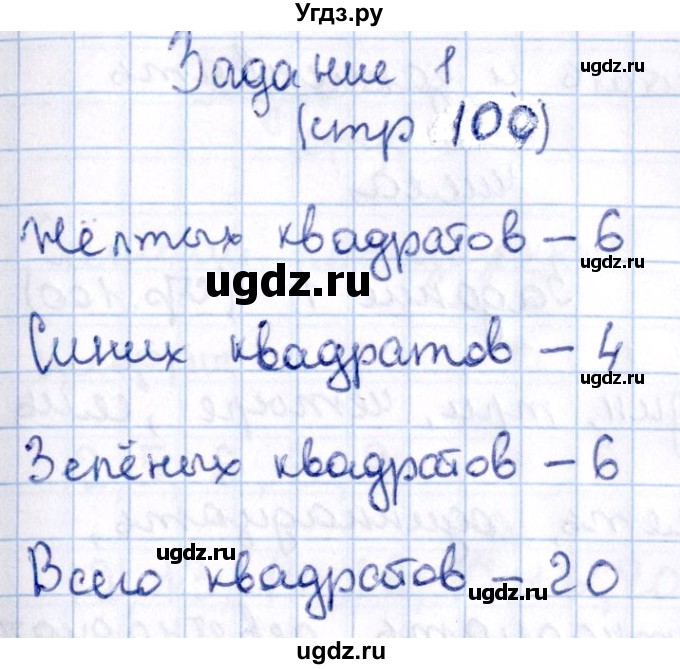 Угдз.ру
Задание 1
ugdz.ru
(стр 100)
ugdz.ru
Жёлтых квадратов – 6
ugdz.ru
ugdz.ru
Синих квадратов – 4
ugdz.ru
Зелёных квадратов – 6
ugdz.ru
ugdz.ru
Всего квадратов – 20
ugdz.ru
ugdz.ru